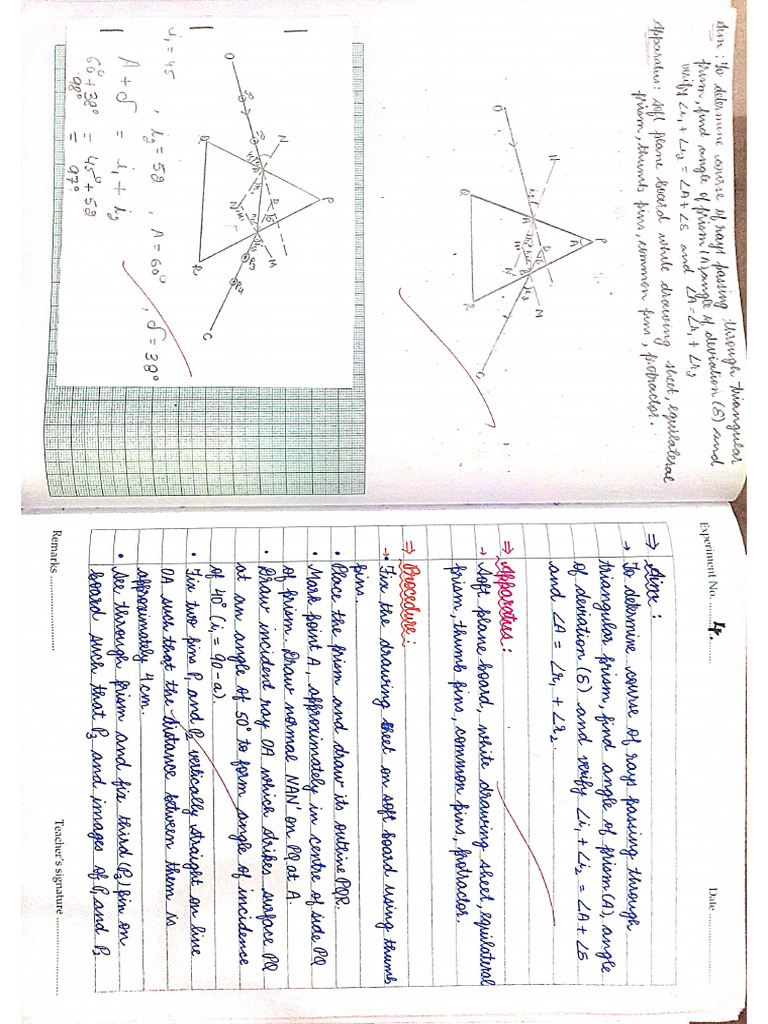 Aim : To determine course of rays passing through triangular
prism, find angle of prism (A), angle of deviation (δ) and
verify ∠i₁ + ∠i₂ = ∠A + ∠δ and ∠A = ∠r₁ + ∠r₂
Apparatus : soft plane board white drawing sheet, equilateral
prism, thumb pins, common pins, protractor.
P
A
N
D
δ
i₁
A
B
M
O
N'
Q
R
C
P
N
D
δ
O
P₁
P₂
A
M
N'
P₃
P₄
Q
R
C
i₁ = 45 , i₂ = 52 , A = 60° , δ = 38°
A + δ = i₁ + i₂
60° + 38° = 45° + 52
98° = 97°
Experiment No. 4. Date
⇒ Aim :
→ To determine course of rays passing through
triangular prism, find angle of prism (A), angle
of deviation (δ) and verify ∠i₁ + ∠i₂ = ∠A + ∠δ
and ∠A = ∠r₁ + ∠r₂.
⇒ Apparatus :
→ Soft plane board, white drawing sheet, equilateral
prism, thumb pins, common pins, protractor.
⇒ Procedure :
→ • Fix the drawing sheet on soft board using thumb
pins.
• Place the prism and draw its outline PQR.
• Mark point A, approximately in centre of side PQ
of prism. Draw normal NAN' on PQ at A.
• Draw incident ray OA which strikes surface PQ
at an angle of 50° to form angle of incidence
of 40° (i = 90 - a).
• Fix two pins P₁ and P₂ vertically straight on line
OA such that the distance between them is
approximately 4 cm.
• See through prism and fix third (P₃) pin on
board such that P₃ and images of P₁ and P₂
Remarks Teacher's signature